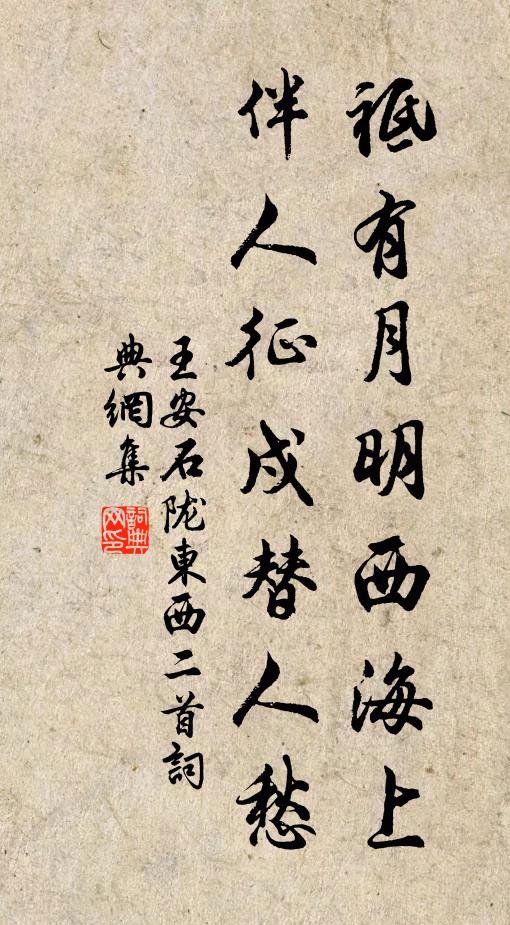 祗有月明西海上
伴人征戍替人愁
王安石陇東西二首詞
典網集
詞典网印